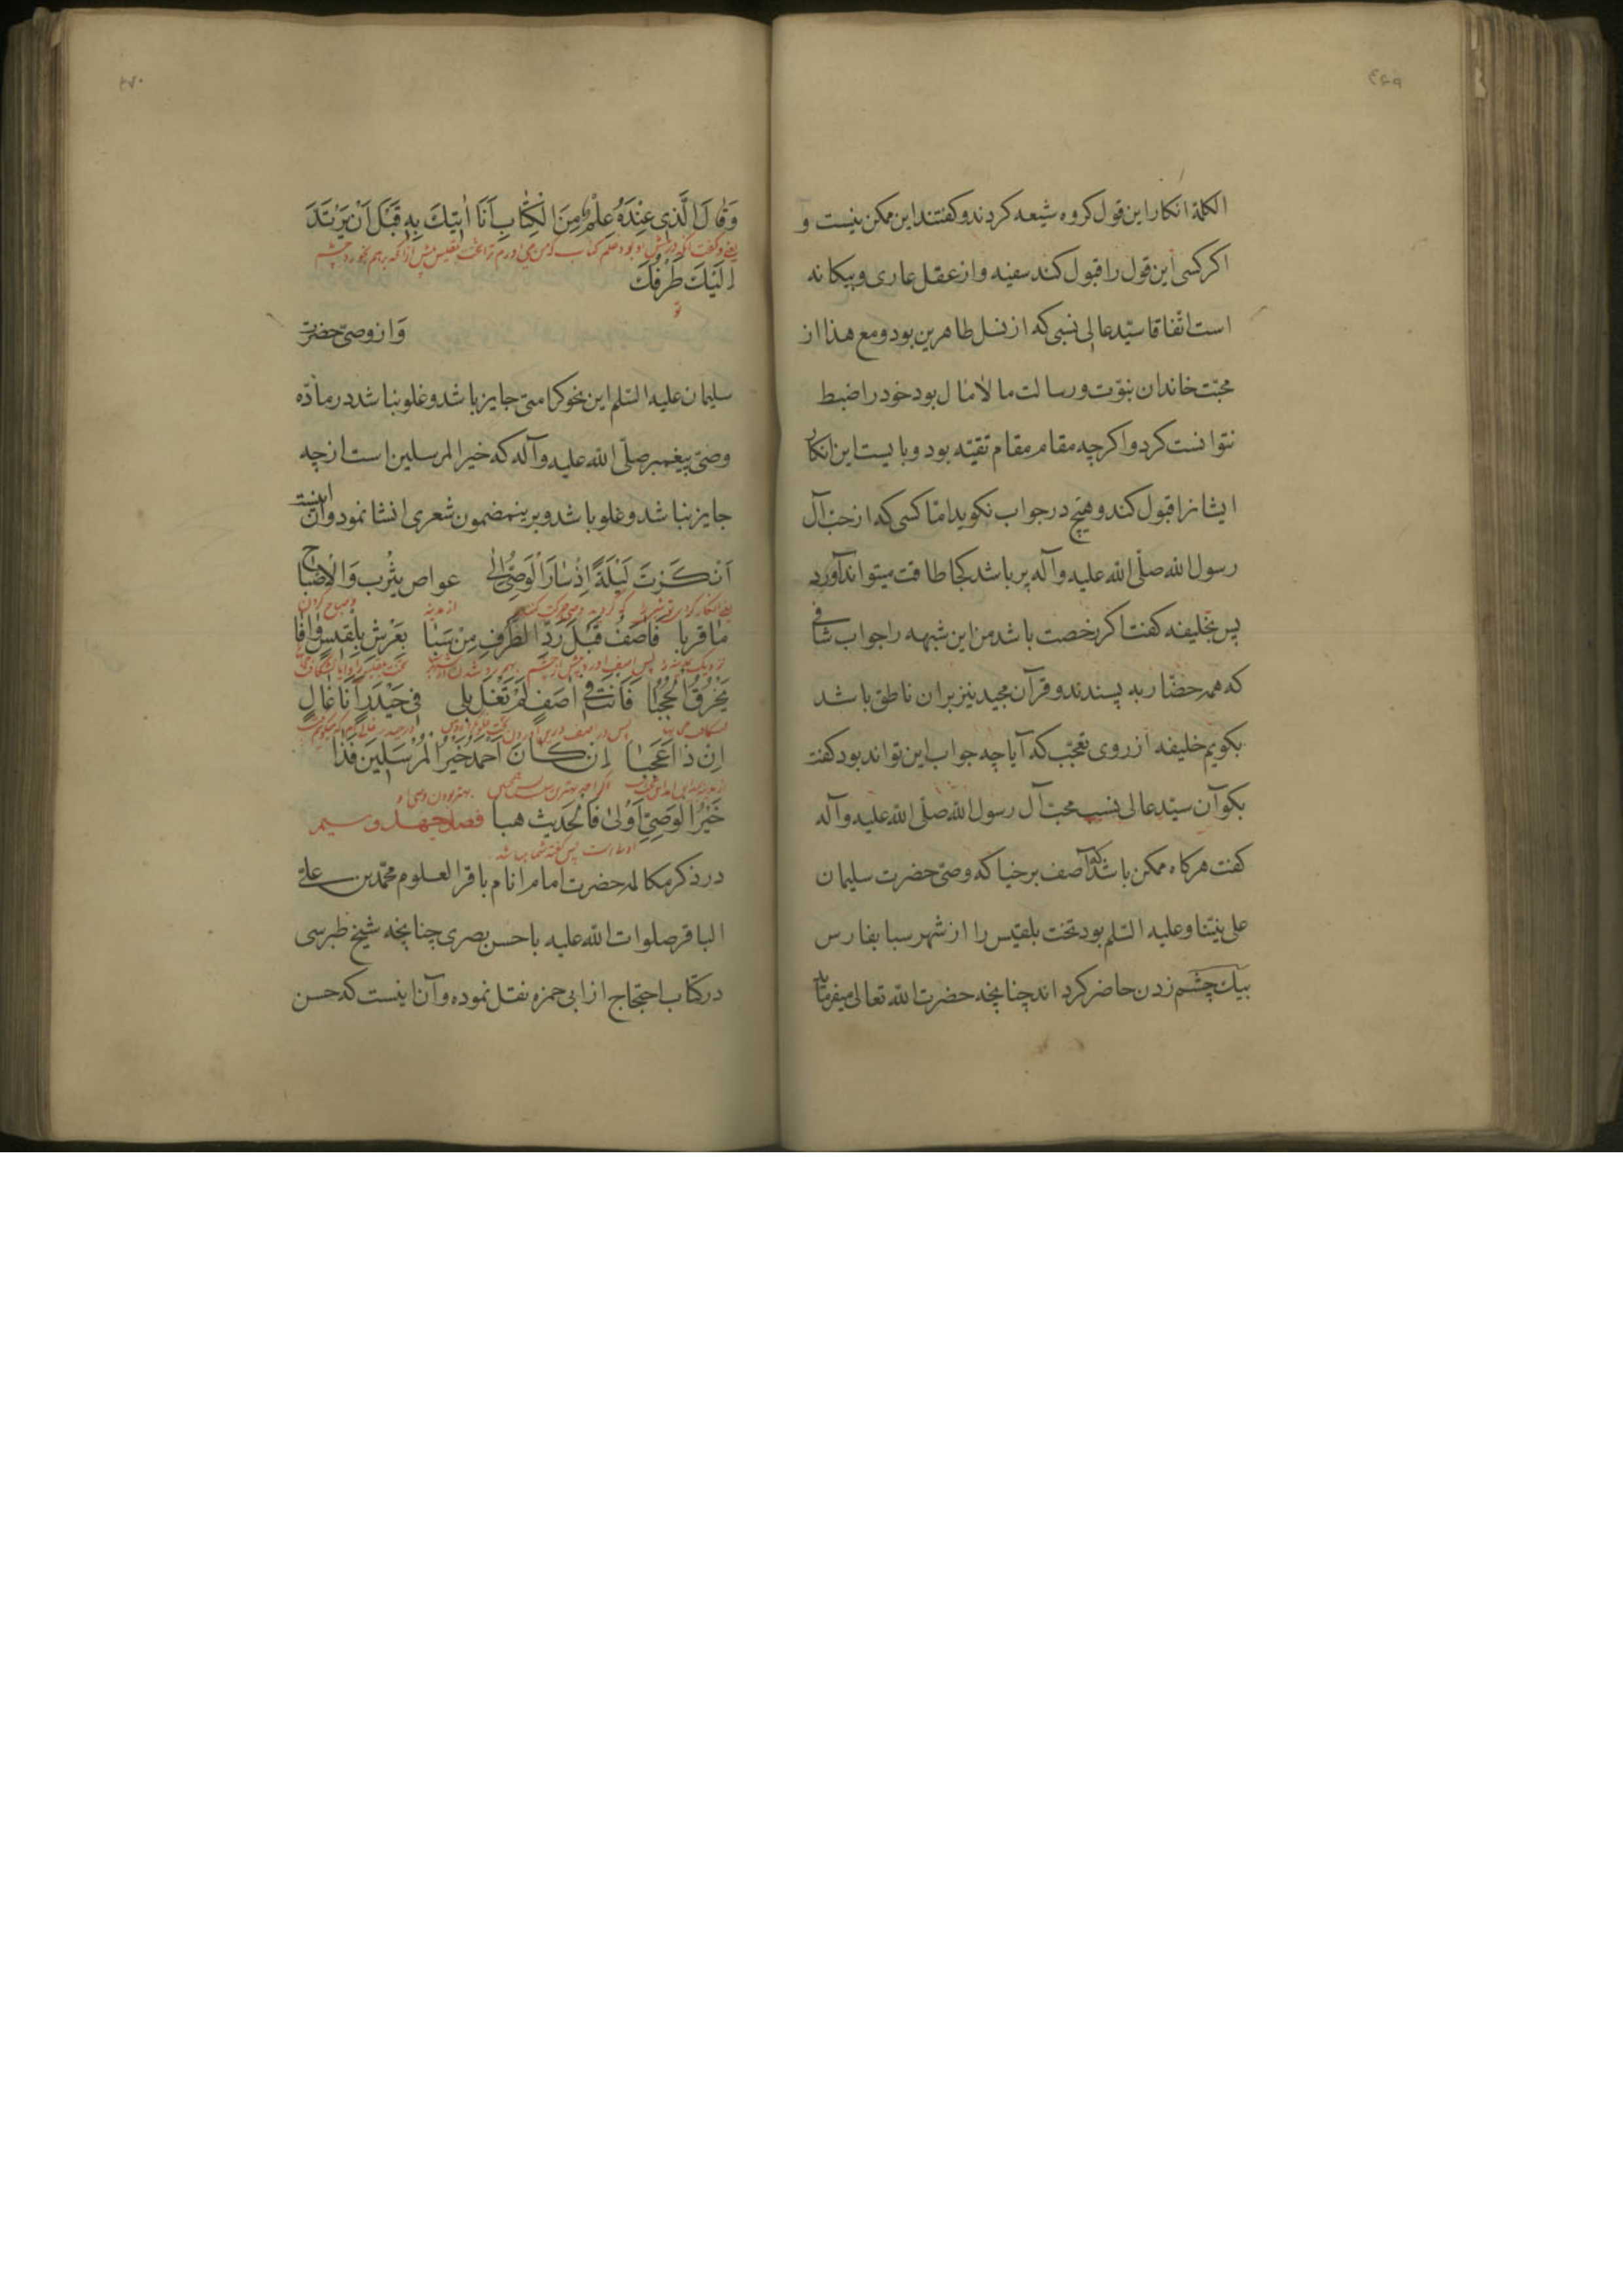 ۴۶۹
الکلمة انکار این قول کروه شیعه کردند و کفتند این ممکن نیست و
اکر کسی این قول را قبول کند سفیه و از عقل عاری و بیکانه
است اتفاقا سیّد عالی نسبی که از نسل طاهرین بود و مع هذا از
محبّت خاندان نبوّت و رسالت مالامال بود خود را ضبط
نتوانست کرد و اکرچه مقام مقام تقیّه بود و بایست این انکار
ایشانرا قبول کند و هیچ در جواب نکوید امّا کسی که از حبّ آل
رسول الله صلّی الله علیه و آله پر باشد کجا طاقت میتواند آورد
پس بخلیفه کفت اکر رخصت باشد من این شبهه را جواب شافی
که همه حضّار به پسندند و قرآن مجید نیز بر ان ناطق باشد
بکویم خلیفه از روی تعجّب که آیا چه جواب این تواند بود کفت
بکو آن سیّد عالی نسب محبّ آل رسول الله صلّی الله علیه و آله
کفت هرکاه ممکن باشد که آصف برخیا که وصیّ حضرت سلیمان
علی نبیّنا و علیه السّلم بود تخت بلقیس را از شهر سبا بفارس
بیک چشم زدن حاضر کرداند چنانچه حضرت الله تعالی میفرماید
۴۷۰
وَقَالَ الَّذِی عِنْدَهُ عِلْمٌ مِنَ الْکِتَابِ أَنَا اٰتِیکَ بِهِ قَبْلَ اَنْ یَرْتَدَّ
یعنی و کفت آنکه در پیش او بود علم کتاب که من می آورم ترا تخت بلقیس پیش از آنکه برهم بخورد چشم
اِلَیْکَ طَرْفُکَ
تو
وَ از وصیّ حضرت
سلیمان علیه السّلم این نحو کرامتی جایز باشد و غلو نباشد در مادّه
وصیّ پیغمبر صلّی الله علیه و آله که خیر المرسلین است از چه
جایز نباشد و غلو باشد و برینمضمون شعری انشا نمود و آن اینست
اَنْکَرْتَ لَیْلَةً اِذْ سَارَ الْوَصِیُّ اِلٰی عواص یثْرِب وَالْاِصْبَاح
از مدینه
مٰا قربا فَاٰصَفُ قَبْلَ رَدِّ الطَّرْفِ مِنْ سَبَا بِعَرْشِ بِلْقِیسٍ وَافَا
یَخْرُقُ الْحُجُبُا فَاَنْتَ فِی اٰصَفٍ لَمْ تَغْلُ بلی فِی حَیْدَرٍ اَنَا غَالٍ
اِنَ ذَا عَجَبٰا اِنْ کَانَ اَحْمَدُ خَیْرُ الْمُرْسَلِینَ فَذَا
خَیْرُ الْوَصِیّ اَوْلٰی فَالْحَدیث هبا فصل چهل و سیم
در ذکر مکالمه حضرت امام انام باقر العلوم محمّد بن علی
الباقر صلوات الله علیه با حسن بصری چنانچه شیخ طبرسی
در کتاب احتجاج از ابی حمزه نقل نموده و آن اینست که حسن